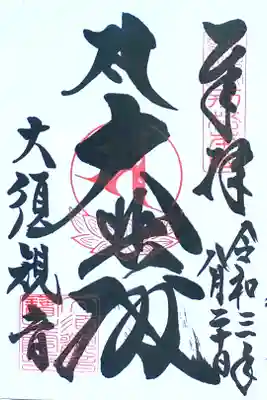 奉拝
令和三年
八月二十日
大悲殿
大須観音